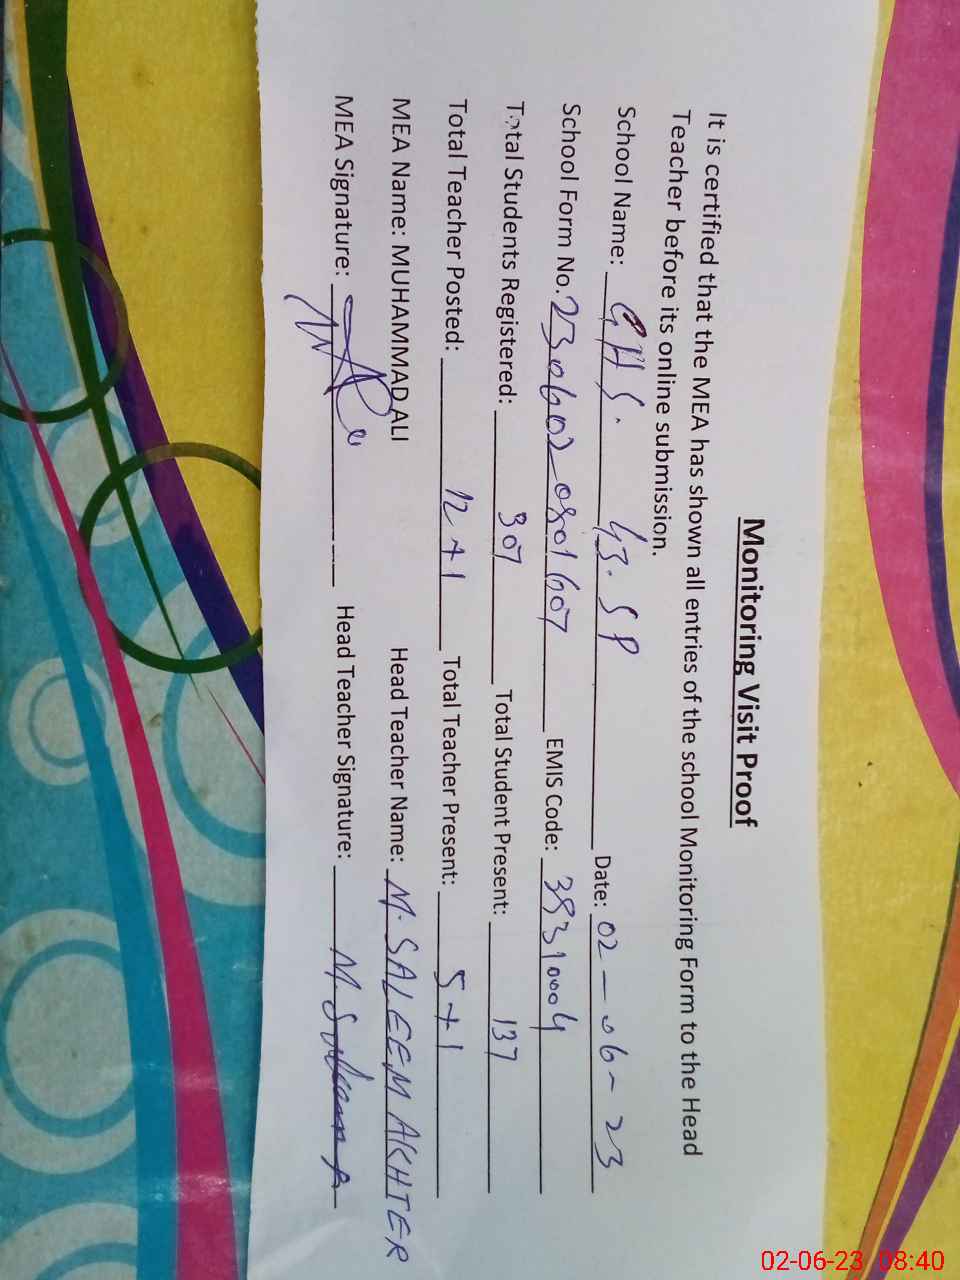 Monitoring Visit Proof
It is certified that the MEA has shown all entries of the school Monitoring Form to the Head
Teacher before its online submission.
School Name: GHS. 43. SP Date: 02-06-23
School Form No. 230602_0801607 EMIS Code: 38310004
Total Students Registered: 307 Total Student Present: 137
Total Teacher Posted: 12+1 Total Teacher Present: 5+1
MEA Name: MUHAMMAD ALI Head Teacher Name: M. SALEEM AKHTER
MEA Signature: Head Teacher Signature:
02-06-23 08:40